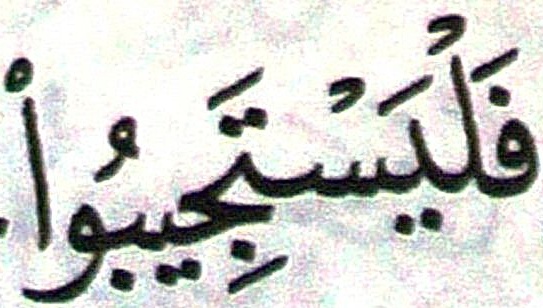 فَلْيَسْتَجِيبُوا۟